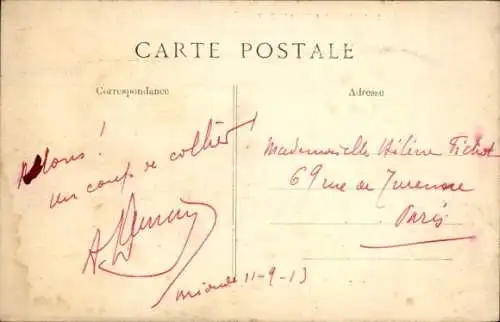 CARTE POSTALE
Correspondance
Adresse
Allons !
un coup de collier !
Mademoiselle Hélène Fichot
69 rue de Turenne
Paris
11-9-13